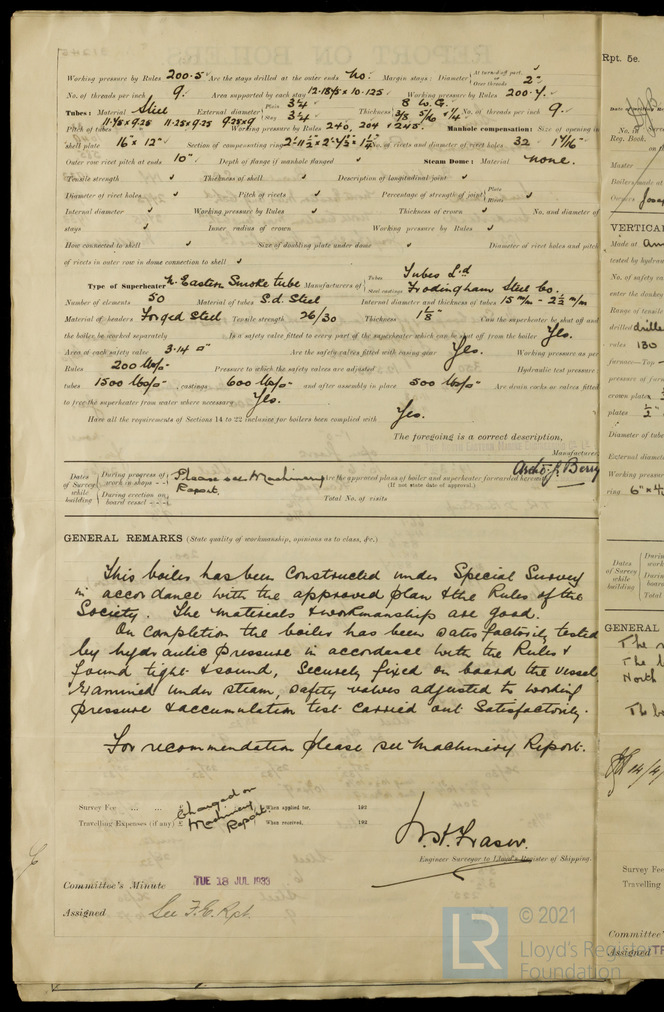 Working pressure by Rules 200.5 Are the stays drilled at the outer ends No. Margin stays: Diameter { At turned off part, Over threads 2"
No. of threads per inch 9. Area supported by each stay 12.1875 x 10.125 Working pressure by Rules 200.7.
Tubes: Material Steel External diameter { Plain 3¼ Stay 3¼ Thickness { 8 W.G. 3/8 5/16 + ¼ No. of threads per inch 9.
Pitch of tubes 11.75 x 9.25 11.25 x 9.25 9.25 x 9 Working pressure by Rules 240, 204 + 245. Manhole compensation: Size of opening in
shell plate 16" x 12" Section of compensating ring No. of rivets and diameter of rivet holes 32 - 1 1/16"
Outer row rivet pitch at ends 10" Depth of flange if manhole flanged Steam Dome: Material none.
Tensile strength Thickness of shell Description of longitudinal joint
Diameter of rivet holes Pitch of rivets Percentage of strength of joint { Plate Rivets
Internal diameter Working pressure by Rules Thickness of crown No. and diameter of
stays Inner radius of crown Working pressure by Rules
How connected to shell Size of doubling plate under dome Diameter of rivet holes and pitch
of rivets in outer row in dome connection to shell
Type of Superheater N. Eastern Smoke tube Manufacturers of { Tubes Tubes Ltd Steel castings Frodingham Steel Co.
Number of elements 50 Material of tubes S.d. Steel Internal diameter and thickness of tubes 15 m/m - 2½ m/m
Material of headers Forged Steel Tensile strength 26/30 Thickness 1⅛" Can the superheater be shut off and
the boiler be worked separately Is a safety valve fitted to every part of the superheater which can be shut off from the boiler Yes.
Area of each safety valve 3.14 □" Are the safety valves fitted with easing gear Yes. Working pressure as per
Rules 200 lbs/□" Pressure to which the safety valves are adjusted Hydraulic test pressure:
tubes 1500 lbs/□" , castings 600 lbs/□" and after assembly in place 500 lbs/□" Are drain cocks or valves fitted
to free the superheater from water where necessary Yes.
Have all the requirements of Sections 14 to 22 inclusive for boilers been complied with Yes.
The foregoing is a correct description,
Manufacturer.
Archd. J. Berry
Dates of Survey while building { During progress of work in shops - - During erection on board vessel - - - Please see Machinery Report. Are the approved plans of boiler and superheater forwarded herewith (If not state date of approval.)
Total No. of visits
GENERAL REMARKS (State quality of workmanship, opinions as to class, &c.)
This boiler has been constructed under Special Survey
in accordance with the approved plan & the Rules of the
Society. The materials & workmanship are good.
On completion the boiler has been satisfactorily tested
by hydraulic pressure in accordance with the Rules &
found tight & sound, Securely fixed on board the vessel,
Examined under steam, safety valves adjusted to working
pressure & accumulation test carried out Satisfactorily.
For recommendation please see Machinery Report.
Survey Fee ... ... £ Charged on Machinery Report. When applied for, 192
Travelling Expenses (if any) £ When received, 192
W. H. Fraser.
Engineer Surveyor to Lloyd's Register of Shipping.
Committee's Minute TUE 18 JUL 1933
Assigned See F.E. Rpt.
© 2021
LR Lloyd's Register
Foundation
Rpt. 5e.
No. in
Reg. Book.
on
Master
Boilers made at
Owners
VERTICAL
Made at
tested by hydrau
No. of safety va
enter the donkey
Range of tensile
drilled drille
rules 130
furnace—Top
pressure of furn
crown plates
plates ½"
Diameter of tube
External diameter
Working pressure
ring
Dates of Survey while building { During work During board Total
GENERAL
The
The b
North
The bo
Survey Fee
Travelling
Committee'
Assigned